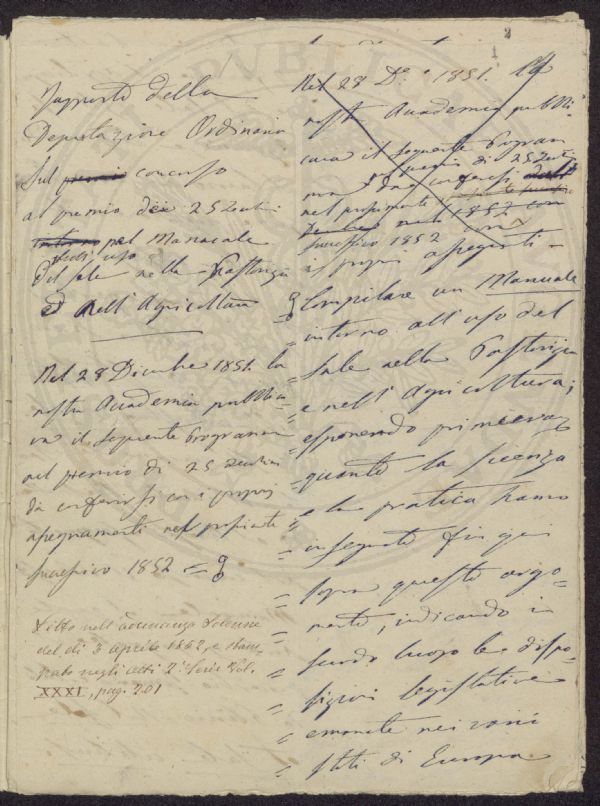 Rapporto della
Deputazione Ordinaria
sul premio concorso
al premio dei 25 Zecchini
intorno pel Manuale
sull' uso
del sale nella Pastorizia
ed nell' Agricoltura
Nel 28 Dicembre 1851. la
nostra Accademia pubbli-
cava il seguente Programma
nel premio di 25 Zecchini
da conferirsi con i proprj
assegnamenti nel prossimo
successivo 1852 =
Letto nell' adunanza solenne
del dì 3 aprile 1852, e stam-
pato negli atti 2.a Serie Vol.
XXXI, pag. 201
2
1
Nel 28 D.e 1851. la
nostra Accademia pubbli-
cava il seguente Program
premio di 25 Zecchini
ma da conferirsi
nel prossimo
1852 con
successivo 1852 con
i proprj assegnamenti -
Compilare un Manuale
intorno all' uso del
= sale nella Pastorizia
= e nell' Agricoltura;
= esponendo primieram.
= quanto la scienza
= e la pratica hanno
= insegnato fin qui
= sopra questo argo=
= mento, indicando in
= secondo luogo le dispo=
= sizioni legislative
= emanate nei varii
= stati di Europa